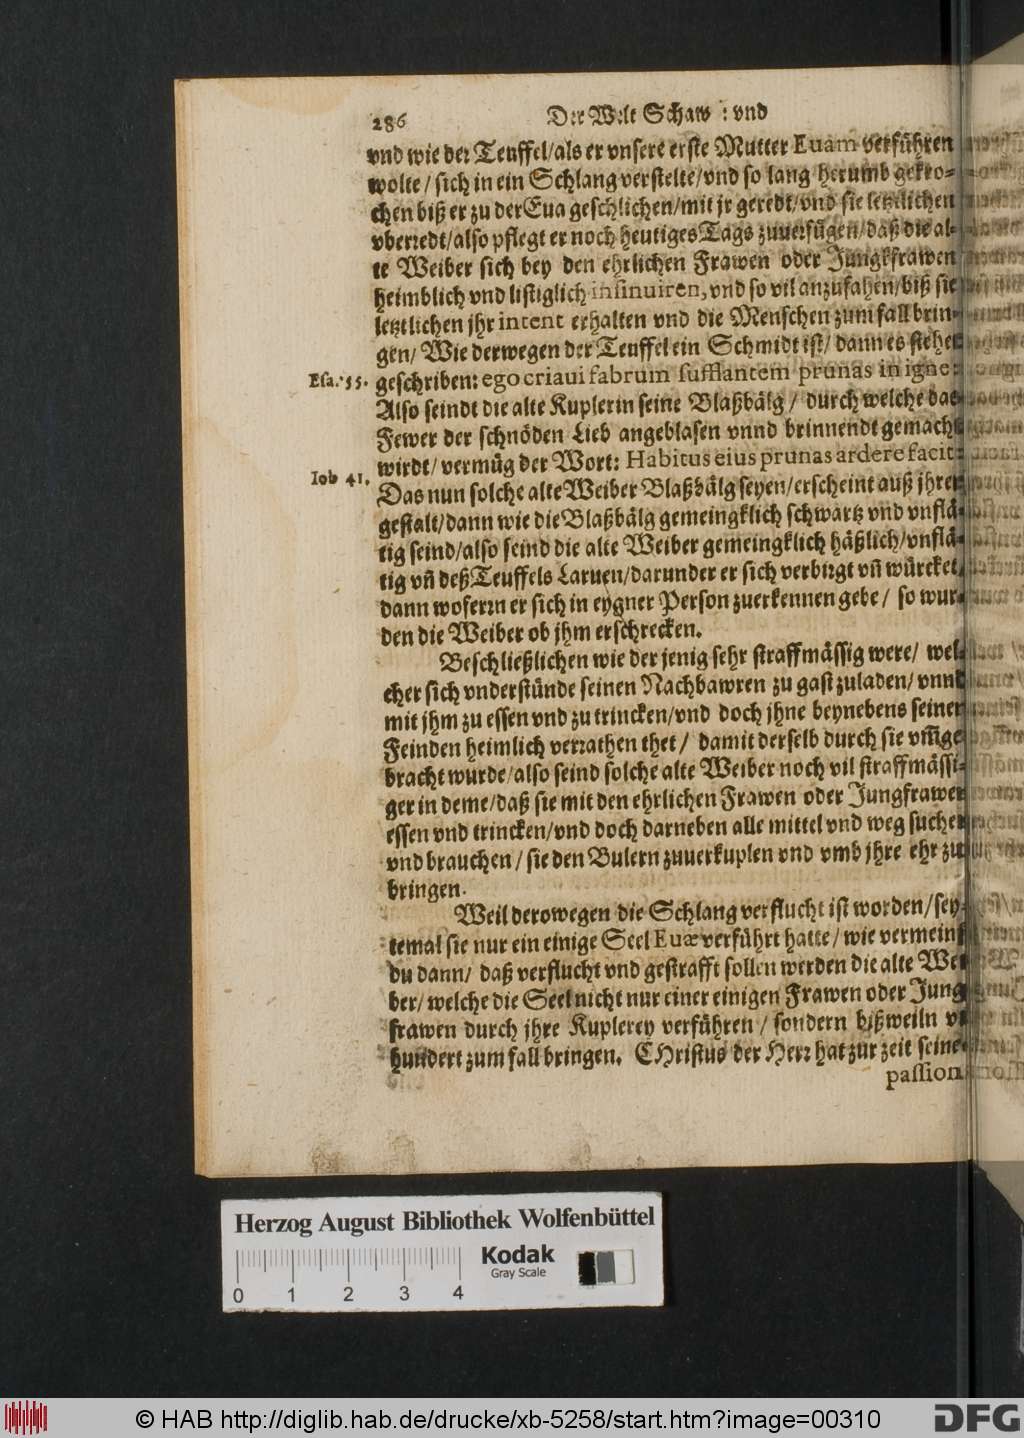 286 Der Welt Schaw : vnd
vnd wie der Teuffel/als er vnsere erste Mutter Euam verführen
wolte/ sich in ein Schlang verstelte/vnd so lang herumb gekro-
chen biß er zu der Eua geschlichen/mit jr geredt/vnd sie letztlichen
vberredt/also pflegt er noch heutiges Tags zuuerfügen/daß die al-
te Weiber sich bey den ehrlichen Frawen oder Jungkfrawen
heimblich vnd listiglich insinuiren, vnd so vil anzufahen/biß sie
letztlichen jhr intent erhalten vnd die Menschen zum fall brin-
gen/ Wie derwegen der Teuffel ein Schmidt ist/ dann es stehet
Esa. 55. geschriben: ego criaui fabrum sufflantem prunas in igne:
Also seindt die alte Kuplerin seine Blaßbälg/ durch welche das
Fewer der schnöden Lieb angeblasen vnnd brinnendt gemacht
wirdt/ vermüg der Wort: Habitus eius prunas ardere facit:
Iob 41. Das nun solche alte Weiber Blaßbälg seyen/erscheint auß jhrer
gestalt/dann wie die Blaßbälg gemeingklich schwartz vnd vnflä-
tig seind/also seind die alte Weiber gemeingklich häßlich/vnflä-
tig vñ deß Teuffels Laruen/darunder er sich verbirgt vñ würcket,
dann woferrn er sich in eygner Person zuerkennen gebe/ so wur-
den die Weiber ob jhm erschrecken.
Beschließlichen wie der jenig sehr straffmässig were/ wel-
cher sich vnderstünde seinen Nachbawren zu gast zuladen/ vnnd
mit jhm zu essen vnd zu trincken/vnd doch jhne beynebens seinen
Feinden heimlich verrathen thet/ damit derselb durch sie vm̃ge
bracht wurde/also seind solche alte Weiber noch vil straffmässi-
ger in deme/daß sie mit den ehrlichen Frawen oder Jungfrawen
essen vnd trincken/vnd doch darneben alle mittel vnd weg suchen
vnd brauchen/ sie den Bulern zuuerkuplen vnd vmb jhre ehr zu
bringen.
Weil derowegen die Schlang verflucht ist worden/sey-
temal sie nur ein einige Seel Euæ verführt hatte/ wie vermeinst
du dann/ daß verflucht vnd gestrafft sollen werden die alte Wei
ber/ welche die Seel nicht nur einer einigen Frawen oder Jung
frawen durch jhre Kuplerey verführen/ sondern bißweiln
hundert zum fall bringen. CHristus der Herr hat zur zeit seiner
passion
Herzog August Bibliothek Wolfenbüttel
Kodak
Gray Scale
0 1 2 3 4
© HAB http://diglib.hab.de/drucke/xb-5258/start.htm?image=00310
DFG